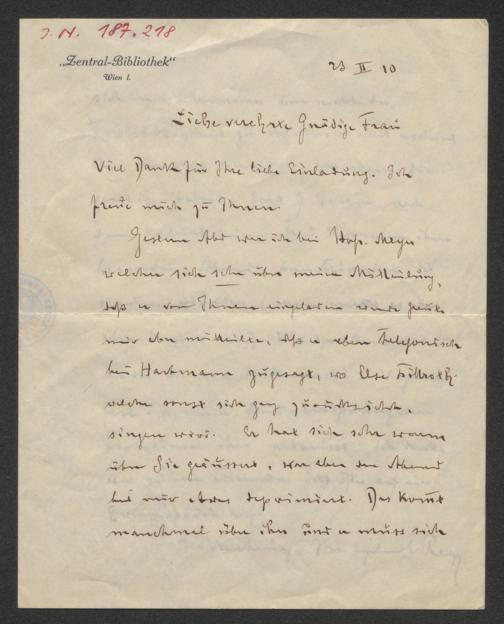 J. N. 187.218
„Zentral-Bibliothek“
Wien I.
23 II 10
Liebe verehrte Gnädige Frau
Viel Dank für Ihre liebe Einladung. Ich
freue mich zu Ihnen.
Gestern Abd war ich bei
welcher sich sehr über meine Mitteilung,
daß er von Ihnen eingeladen werde freute
mir aber mitteilte, daß er eben Telefonisch
bei Hartmann zugesagt, wo Else
welche sonst sich ganz zurückzieht,
singen wird. Er hat sich sehr warm
über Sie geäussert, war aber den Abend
bei mir etwas deprimiert. Das kommt
manchmal über ihn und er muss sich